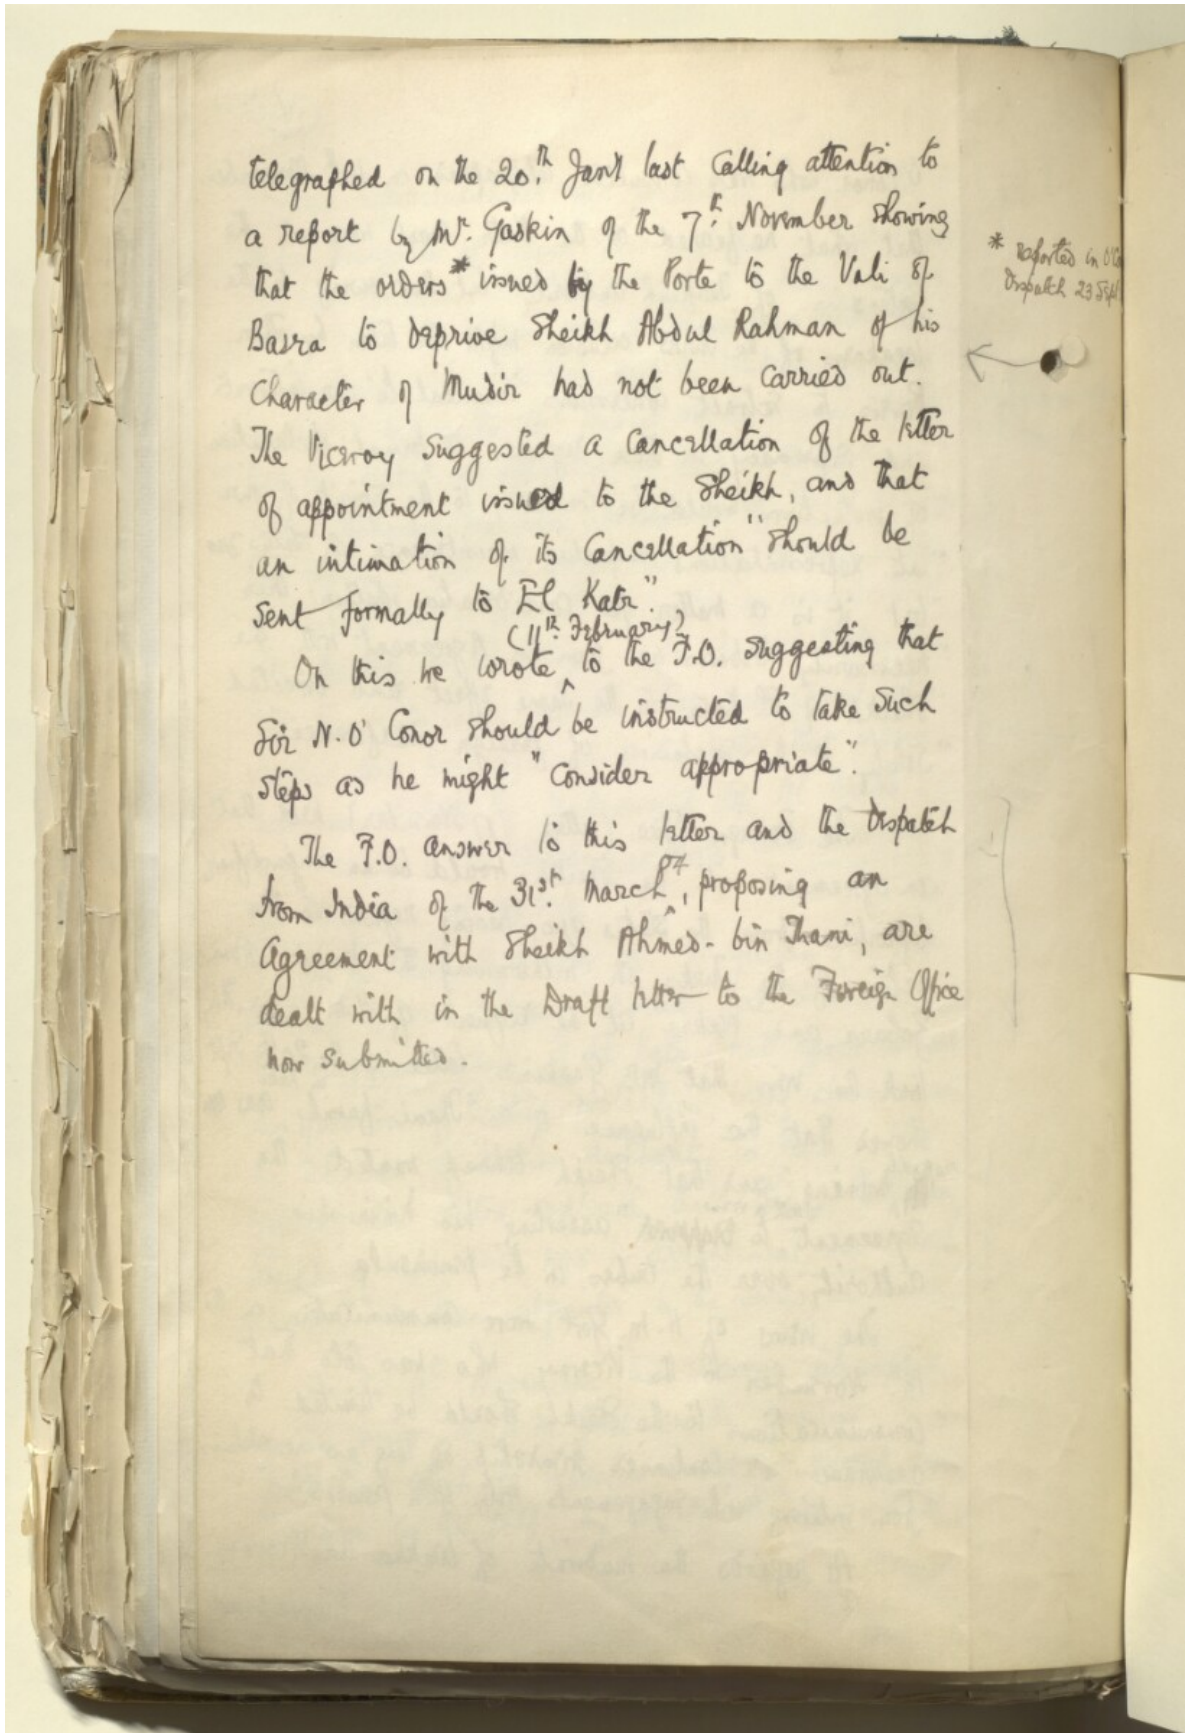 telegraphed on the 20.th Jany last calling attention to
a report by Mr. Gaskin of the 7th. November showing
that the orders* issued by the Porte to the Vali of
Basra to deprive Sheikh Abdul Rahman of his
character of Mudir had not been carried out.
The Viceroy suggested a cancellation of the letter
of appointment issued to the Sheikh, and that
an intimation of its cancellation "should be
sent formally to El Katr".
(11th. February)
On this we wrote ^ to the F.O. suggesting that
Sir N. O'Conor should be instructed to take such
steps as he might "consider appropriate".
The F.O. answer to this letter and the Dispatch
from India of the 31st. March ^, proposing an
Agreement with Sheikh Ahmed-bin Thani, are
dealt with in the Draft letter to the Foreign Office
now submitted.
* reported in
Dispatch 23 Sept